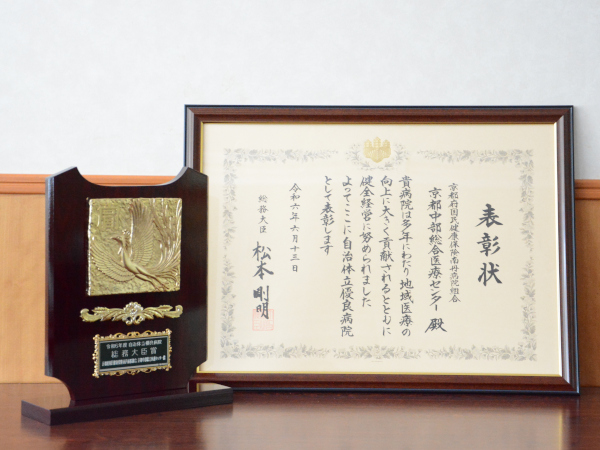 表彰状
京都府国民健康保険南丹病院組合
京都中部総合医療センター 殿
貴病院は多年にわたり地域医療の
向上に大きく貢献されるとともに
健全経営に努められました
よってここに自治体立優良病院
として表彰します
令和六年六月十三日
総務大臣 松本剛明
令和6年度 自治体立優良病院
総務大臣賞